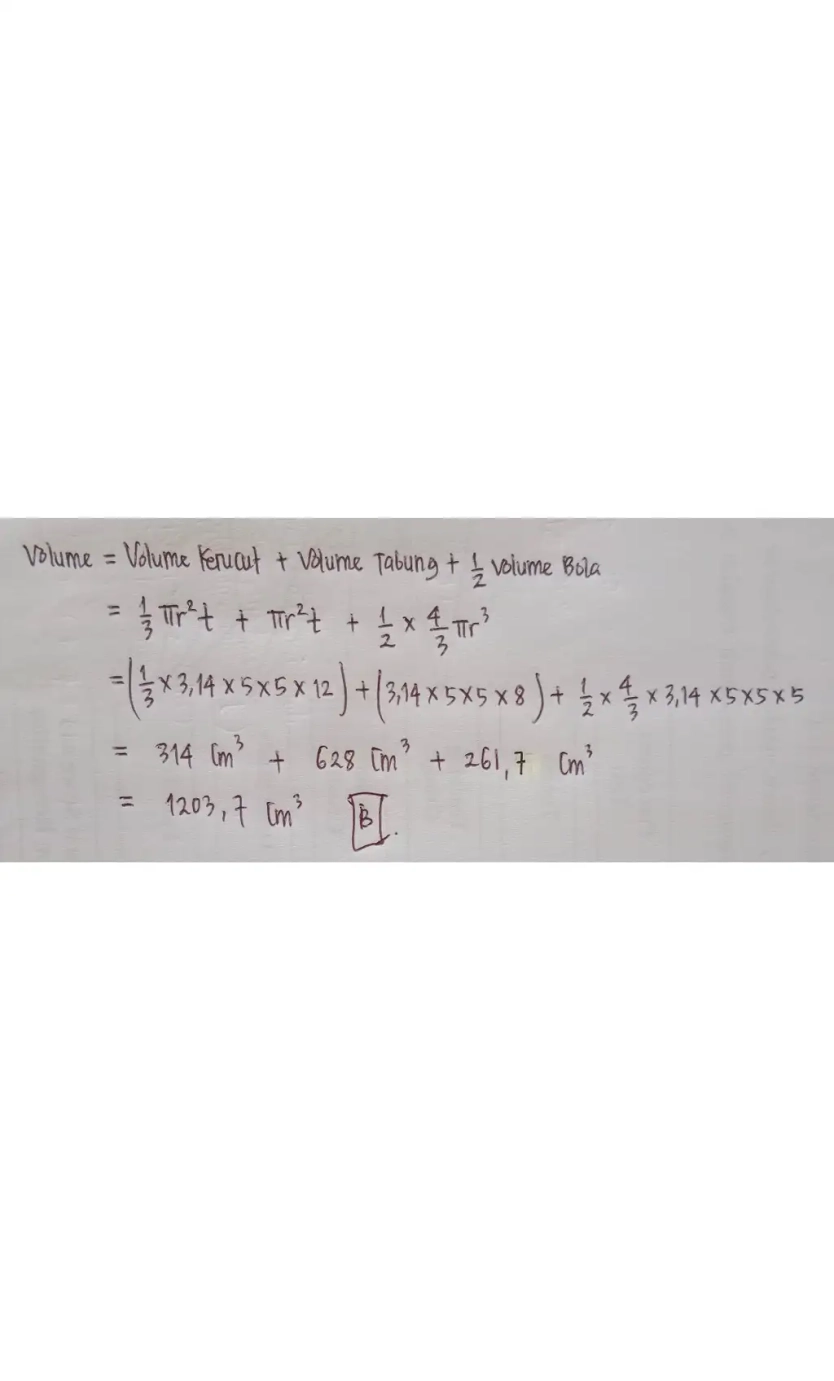 Volume = Volume Kerucut + Volume Tabung + 1/2 Volume Bola
= 1/3 πr²t + πr²t + 1/2 × 4/3 πr³
= (1/3 × 3,14 × 5 × 5 × 12) + (3,14 × 5 × 5 × 8) + 1/2 × 4/3 × 3,14 × 5 × 5 × 5
= 314 cm³ + 628 cm³ + 261,7 cm³
= 1203,7 cm³ B.